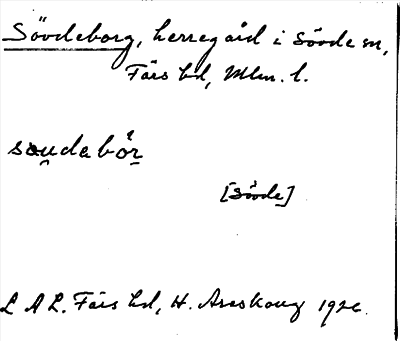 Sövdeborg, herregård i Sövde sn,
Färs hd, Mlm. l.
saudabår
[Sövde]
L A L. Färs hd, H. Areskoug 1926.